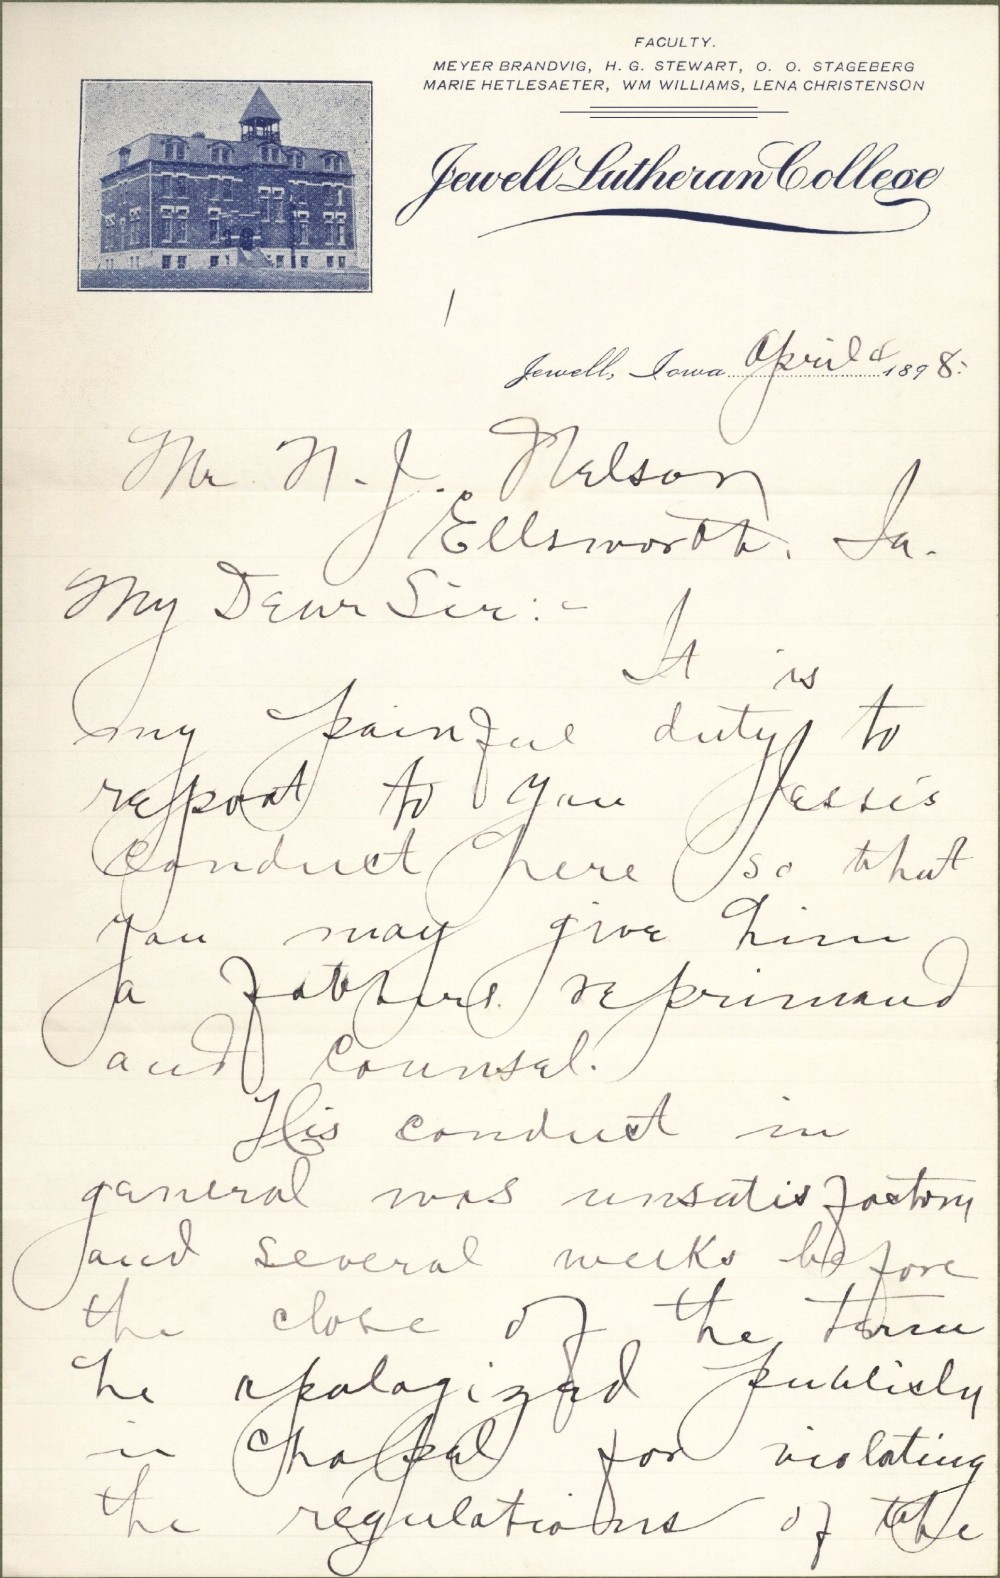 FACULTY.
MEYER BRANDVIG, H. G. STEWART, O. O. STAGEBERG
MARIE HETLESAETER, WM WILLIAMS, LENA CHRISTENSON
Jewell Lutheran College
1
Jewell, Iowa April 4 1898.
Mr. N. J. Nelson
Ellsworth, Ia.
My Dear Sir:-
It is
my painful duty to
report to you Jessis
conduct here so that
you may give him
a fathers reprimand
and counsel.
His conduct in
general was unsatisfactory
and several weeks before
the close of the term
he apologized publicly
in Chapel for violating
the regulations of the